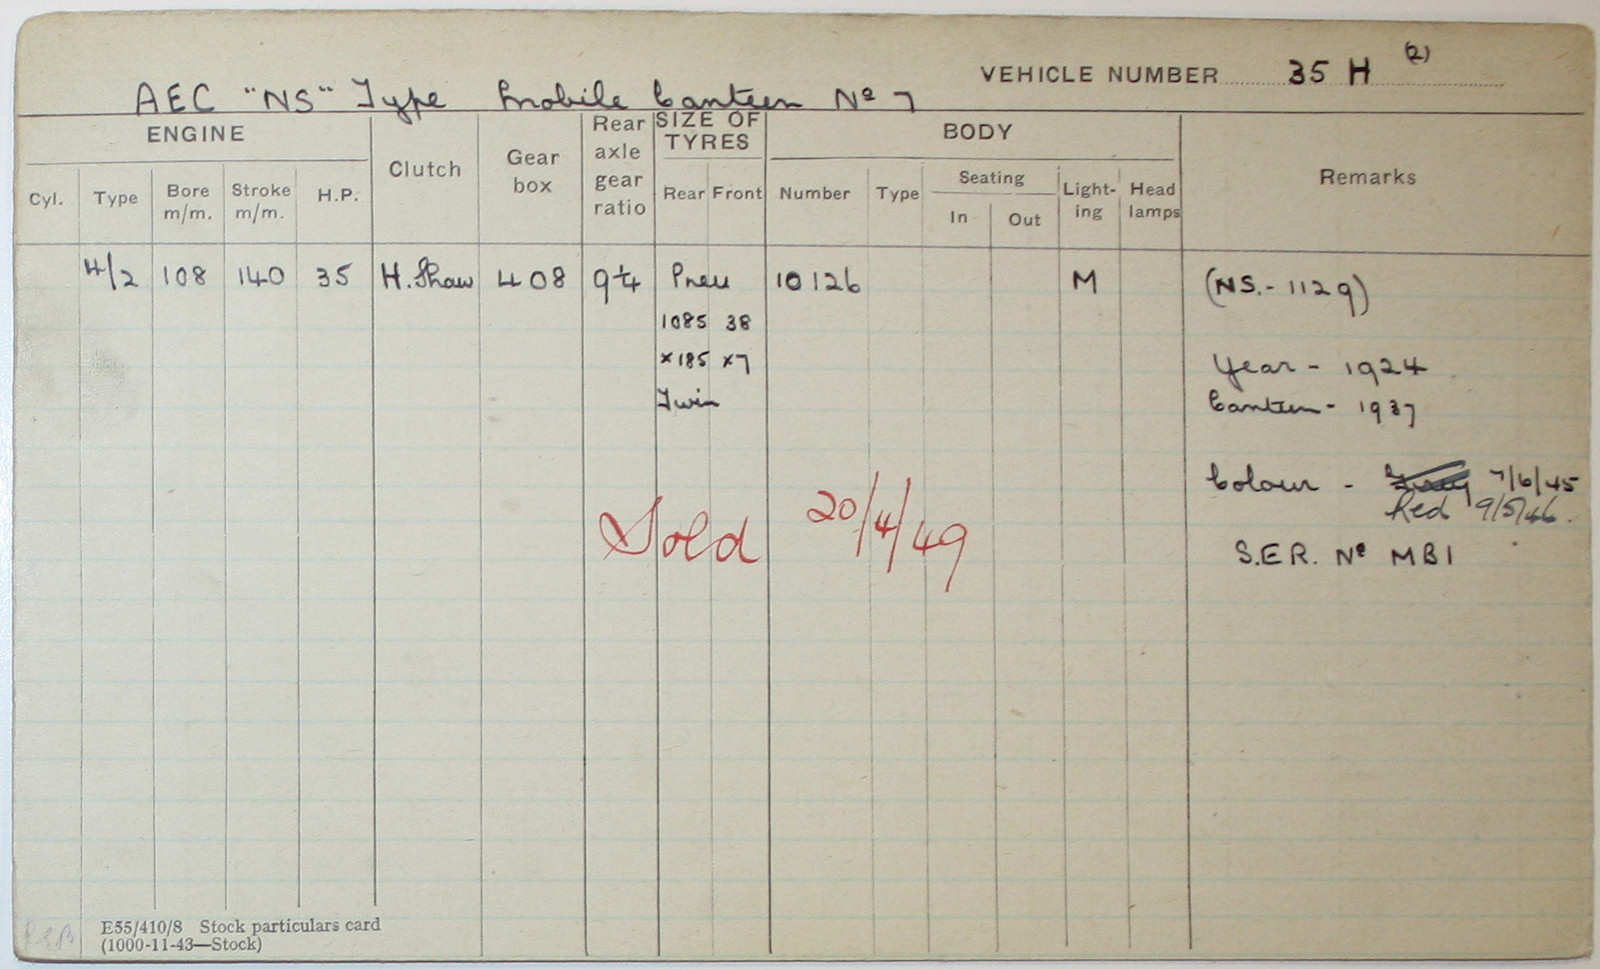 VEHICLE NUMBER 35 H (2)
AEC "NS" Type Mobile Canteen Nº 7
ENGINE
Clutch
Gear box
Rear axle gear ratio
SIZE OF TYRES
BODY
Remarks
Cyl.
Type
Bore m/m.
Stroke m/m.
H.P.
Rear Front
Number
Type
Seating
In
Out
Light-ing
Head lamps
4/2 108 140 35 H. Shaw 408 9¼ Pneu 10126 M (NS.-1129)
1085 38
×185 ×7 Year - 1924
Twin Canteen - 1937
Colour - Grey 7/6/45
Red 9/5/46.
Sold 20/4/49
S.E.R. Nº MB1
E55/410/8 Stock particulars card
(1000-11-43—Stock)